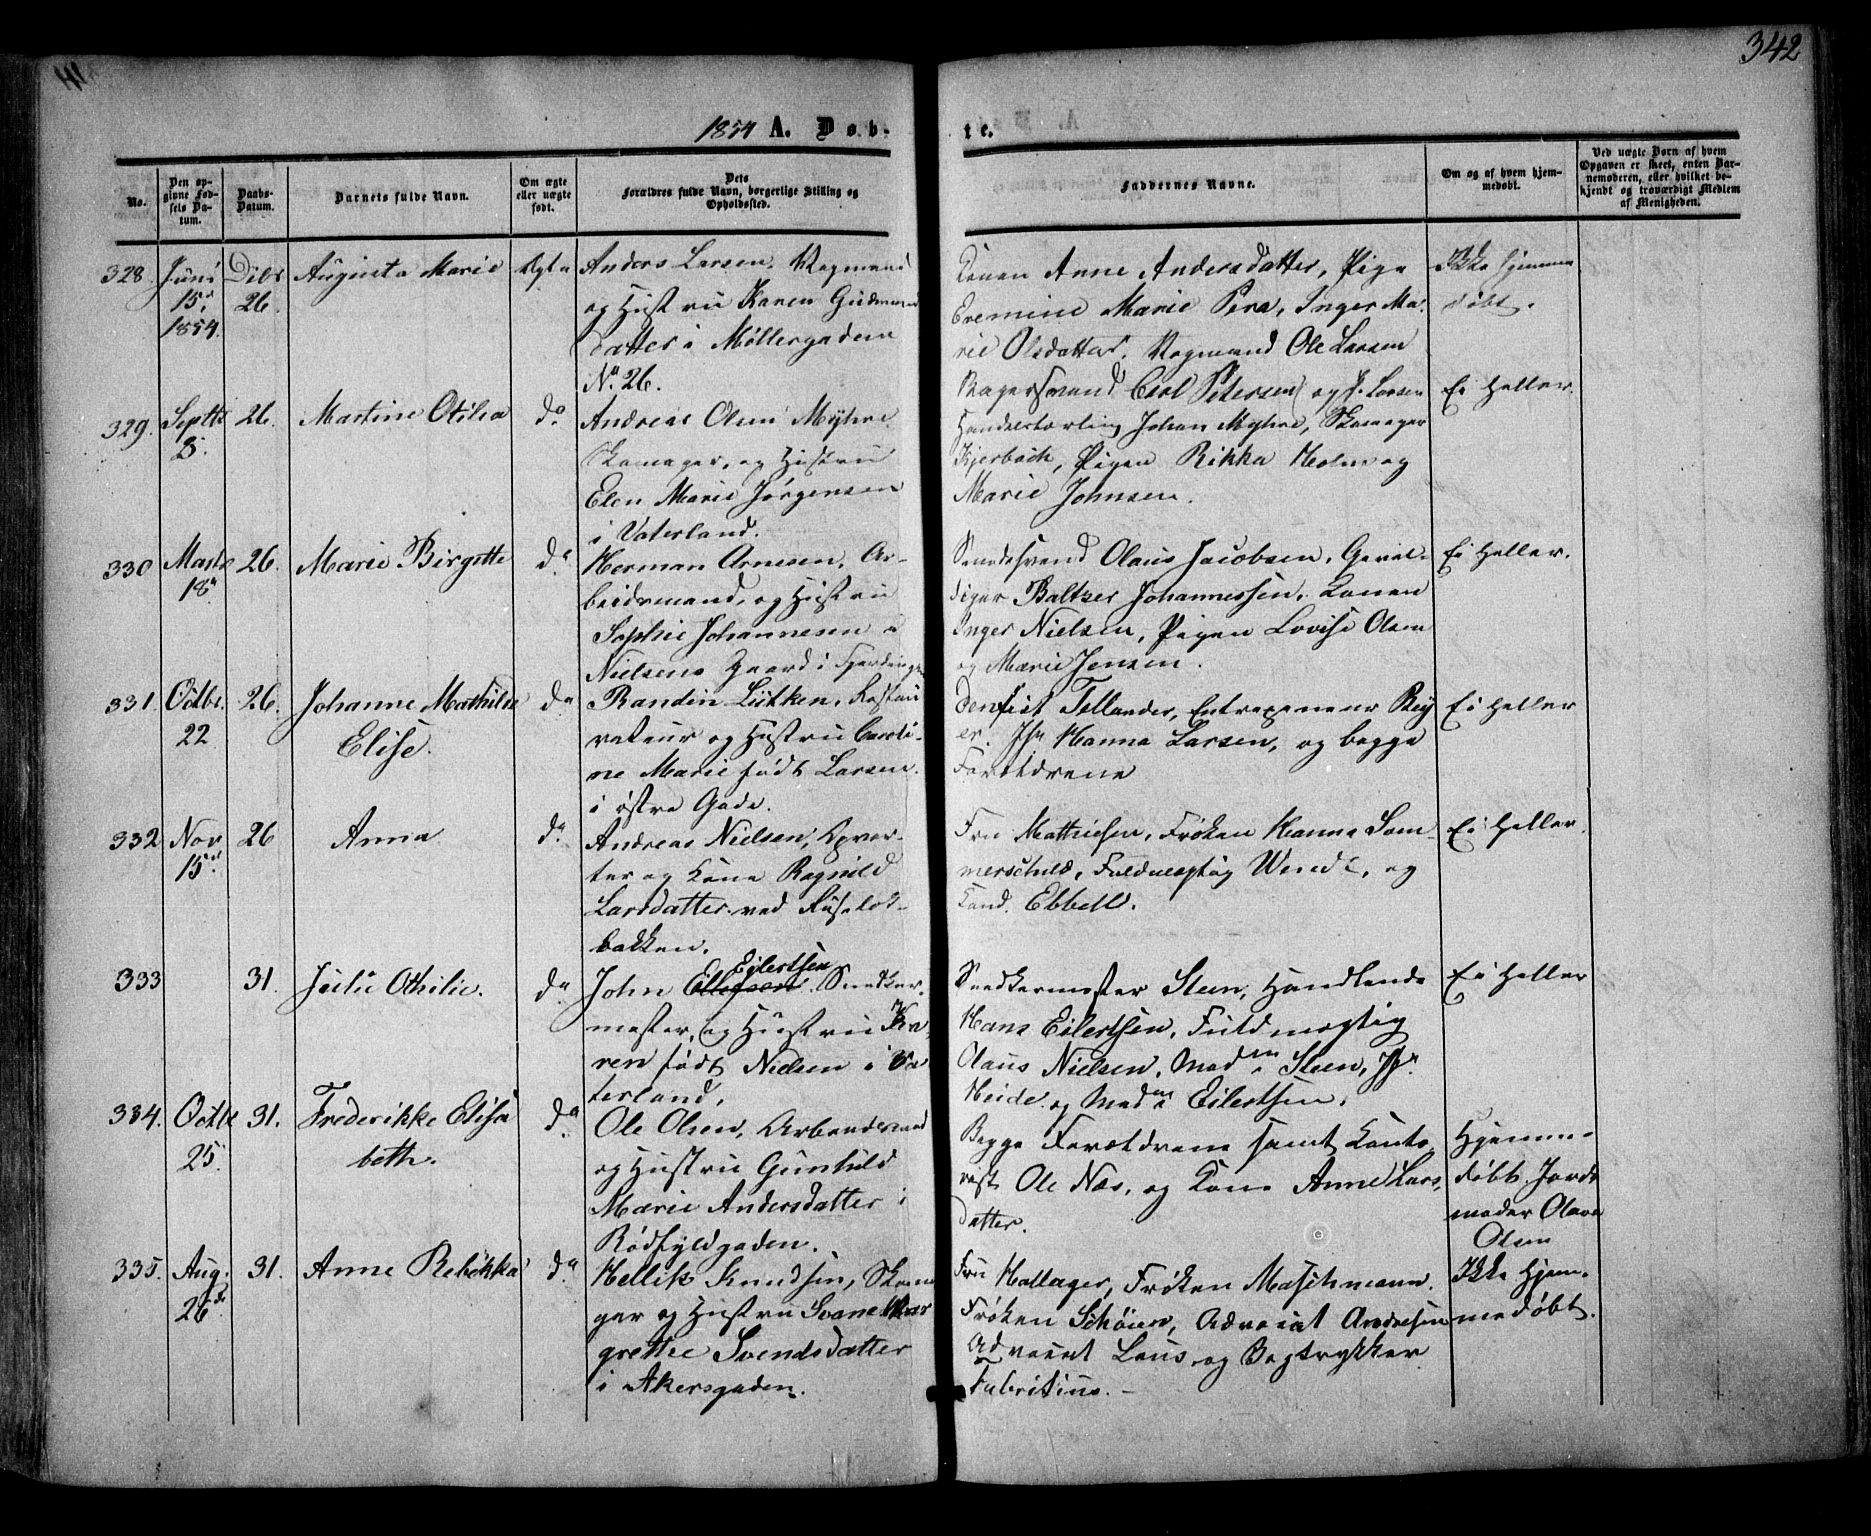 342
1854 A. Døb-
te.
No.
Den op-
givne Fød-
sels Da-
tum.
Daabs-
Datum.
Barnets fulde Navn.
Om ægte
eller uægte
født.
Dets
Forældres fulde Navn, borgerlige Stilling og
Opholdssted.
Faddernes Navne.
Om og af hvem hjem-
medøbt.
Ved uægte Børn af hvem
Opgaven er skeet, enten Bar-
nemoderen, eller hvilket be-
kjendt og troværdigt Medlem
af Menigheden.
328.
Juni
15d
1854.
Dcbr
26.
Augusta Marie
Ægte
Anders Larsen, Vogmand
og Hustru Karen Gudmund
datter i Møllergaden
No. 26.
Konen Anne Andersdatter, Pige
Marie Inger Ma-
rie Olsdatter, Vogmand Ole Larsen
Ikke hjemme
døbt.
329.
Septb
3.
26.
Martine Otilia
do
Andreas Olsen Myhre
Skomager, og Hustru
Elen Marie Jørgensen
i Vaterland.
Bagersvend Carl Petersen og P. Larsen
Johan Myhre, Skomager
Kjerbäck, Pigen Rikka Holm og
Marie Johnsen.
Ei heller.
330
Marts
18d
26.
Marie Birgitte
do
Herman Arnesen, Ar-
beidsmand, og Hustru
Sophie Johannesen i
Nielsens Gaard i Fjerdingen
Olaus Jacobsen, Geval-
diger Baltzer Johannessen, Konen
Inger Nielsen, Pigen Lovise Olsen
og Marie Jensen.
Ei heller.
331.
Octbr.
22
26.
Johanne Mathilde
Elise.
do
Randin Lütken, Restau
rateur og Hustru Caroli-
ne Marie født Larsen
i østre Gade.
Tellander, Entrepeneur Rey
er. Jfr Hanna Larsen, og begge
Forældrene
Ei heller
332
Nov
15d
26
Anna
do
Andreas Nielsen,
og Kone Ragnild
Larsdatter ved Ruseløk-
bakken.
Fru Mathiesen, Frøken Hanna Som-
merschild, Fuldmægtig Wendt, og
Cand. Ebbell.
Ei heller.
333
31.
Julie Othilie.
do
John Ellefsen Eilertsen Snedker-
mester, og Hustru Ka
ren født Nielsen i Va
terland.
Snedkermester Steen, Handlende
Hans Eilertsen, Fuldmægtig
Olaus Nielsen, Madm Steen, Jfr
Heide og Madm Eilertsen.
Ei heller
334.
Octbr
25.
31.
Frederikke Elisa
beth.
do
Ole Olsen, Arbeidsmand
og Hustru Gunhild
Marie Andersdatter i
Rødfyldgaden.
Begge Forældrene samt Konto
rist Ole Næs, og Kone Anne Lars
datter.
Hjemme-
døbt. Jord-
moder Olava
Olsen
335.
Aug.
26de
31.
Anne Rebekka
do
Hellik Knudsen, Skoma
ger og Hustru Svane Mar
grethe Svendsdatter
i Akersgaden.
Fru Hallager, Frøken Maschmann
Frøken Schøien, Advocat Andresen
Advocat Lous og Bogtrykker
Fabritius. –
Ikke hjem-
medøbt.